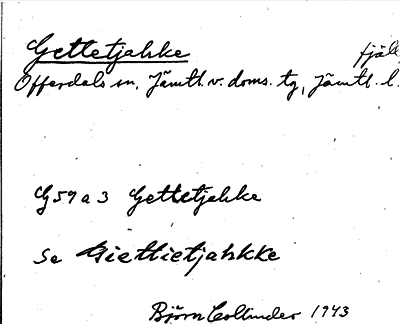 Gettetjahke fjäll
Offerdals sn, Jämtl. v. doms. tg, Jämtl. l.
G59a3 Gettetjahke
Se Giettietjahkke
Björn Collinder 1943